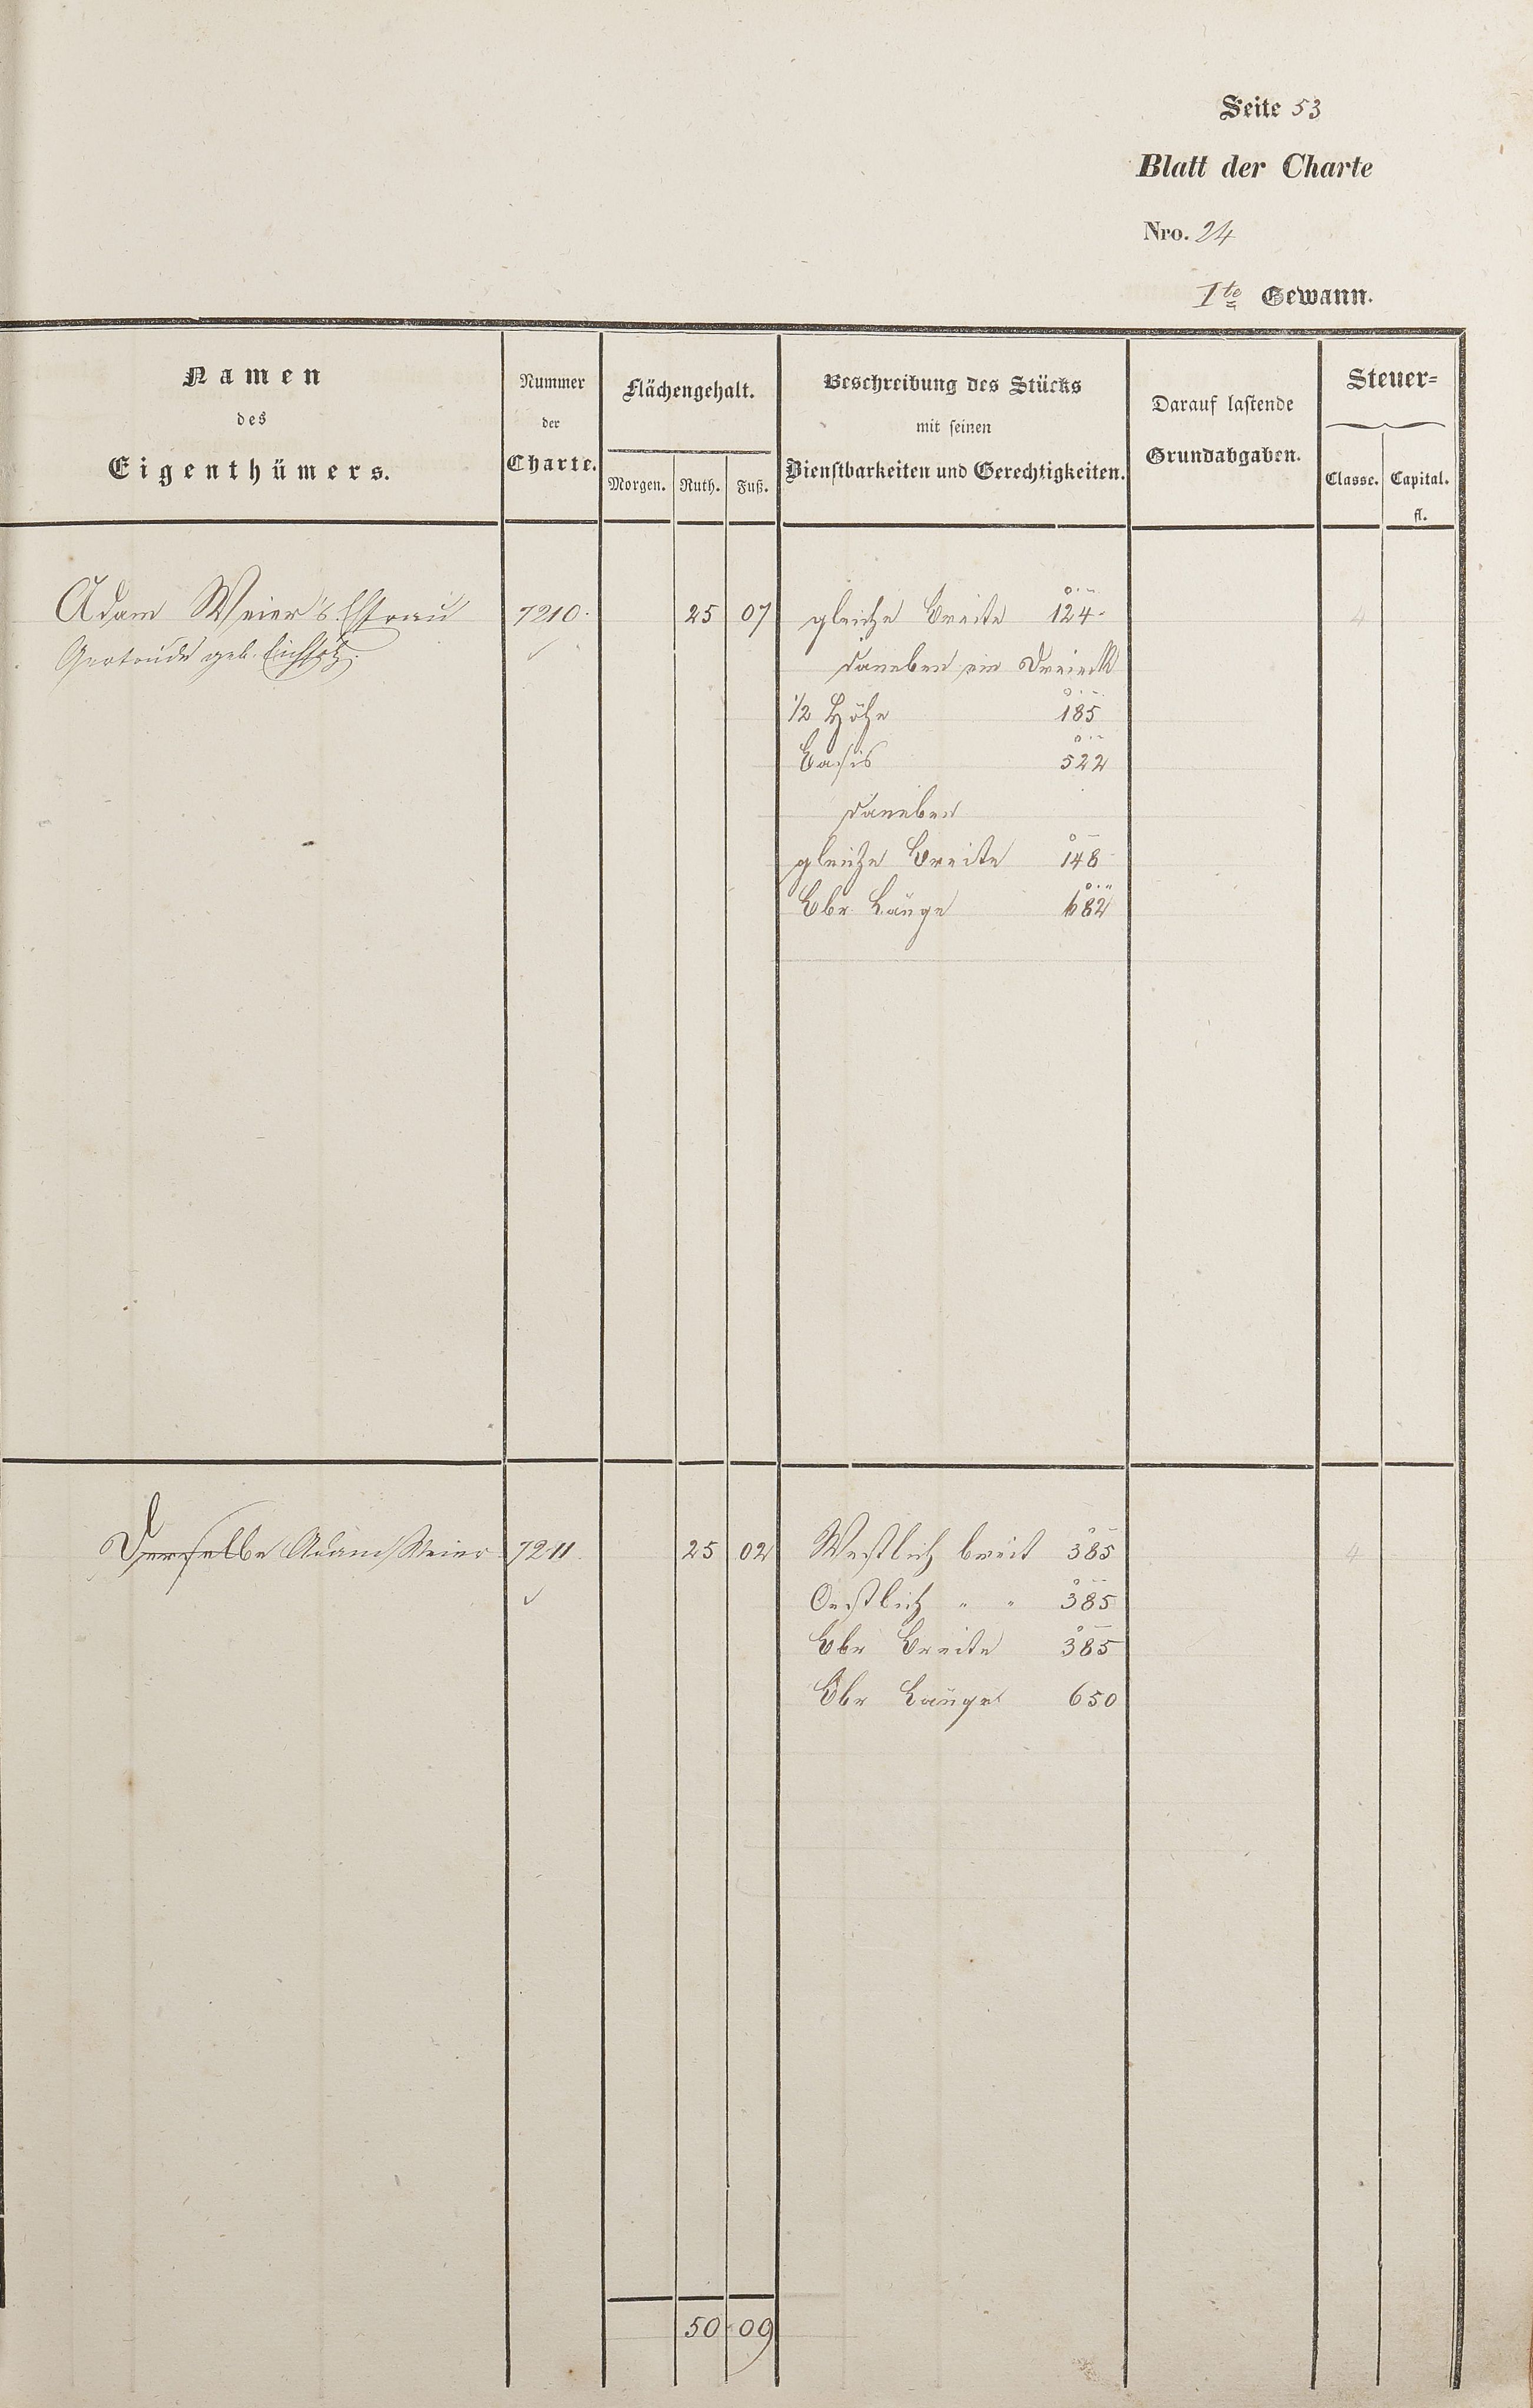 Seite 53
Blatt der Charte
Nro. 24
1te Gewann.
Namen
des
Eigenthümers.
Nummer
der
Charte.
Flächengehalt.
Morgen. Ruth. Fuß.
Beschreibung des Stücks
mit seinen
Dienstbarkeiten und Gerechtigkeiten.
Darauf lastende
Grundabgaben.
Steuer=
Classe. Capital.
fl.
Adam Weier's Ehfrau 7210. 25 07 gleiche Breite 124 4
Gertrude geb. daneben ein Dreieck
1/2 Höhe 185
Basis 522
daneben
gleiche Breite 148
Ebr Länge 682
Derselbe Adam Weier 7211. 25 02 Westlich breit 385 4
Oestlich " " 385
Ebr Breite 385
Ebr Länge 650
50 09